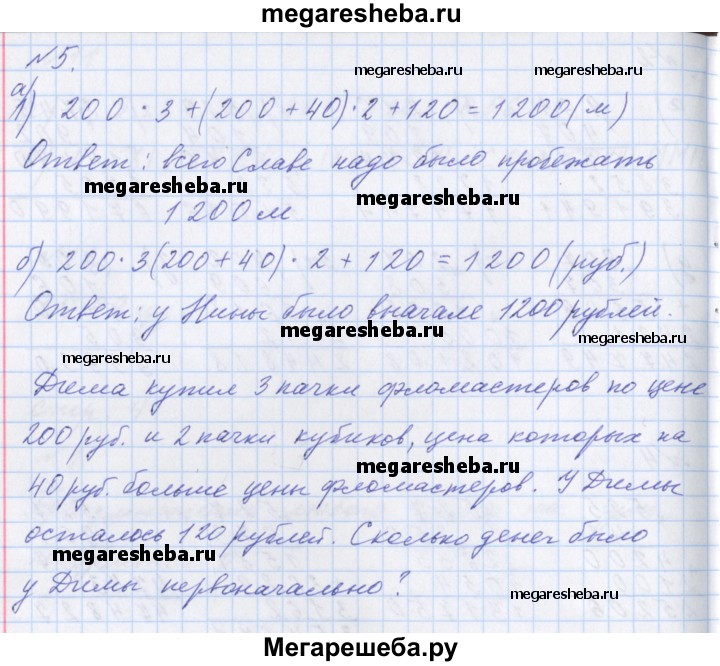 megaresheba.ru
№5.
megaresheba.ru megaresheba.ru
а)
1) 200 · 3 + (200 + 40) · 2 + 120 = 1200 (м)
Ответ: всего Славе надо было пробежать
megaresheba.ru megaresheba.ru
1200 м
б) 200 · 3 (200 + 40) · 2 + 120 = 1200 (руб.)
Ответ: у Нины было вначале 1200 рублей.
megaresheba.ru megaresheba.ru
megaresheba.ru
Дима купил 3 пачки фломастеров по цене
200 руб. и 2 пачки кубиков, цена которых на
megaresheba.ru
40 руб. больше цены фломастеров. У Димы
осталось 120 рублей. Сколько денег было
megaresheba.ru
у Димы первоначально?
megaresheba.ru
Мегарешеба.ру